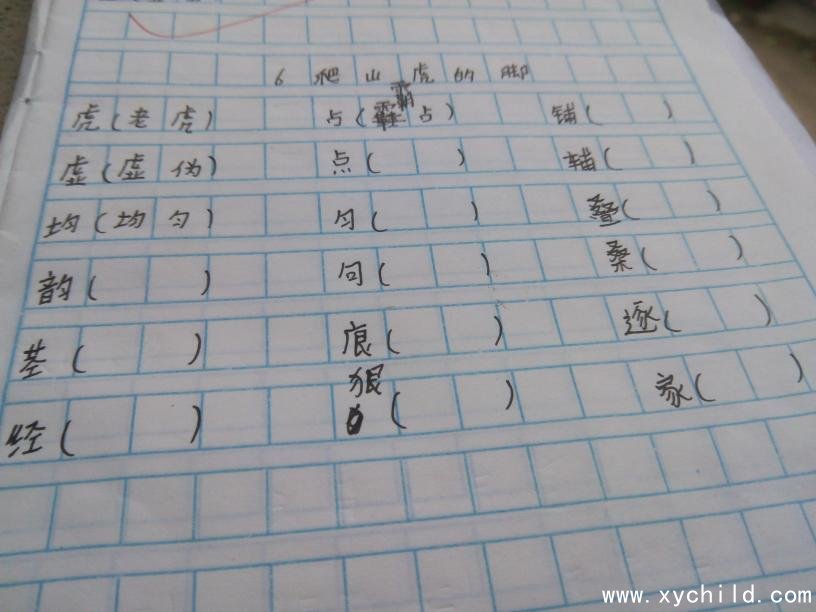 6 爬山虎的脚
虎(老虎) 占(霸占) 铺( )
虚(虚伪) 点( ) 辅( )
均(均匀) 匀( ) 叠( )
韵( ) 句( ) 桑( )
茎( ) 痕( ) 逐( )
经( ) 狠( ) 家( )
www.xychild.com